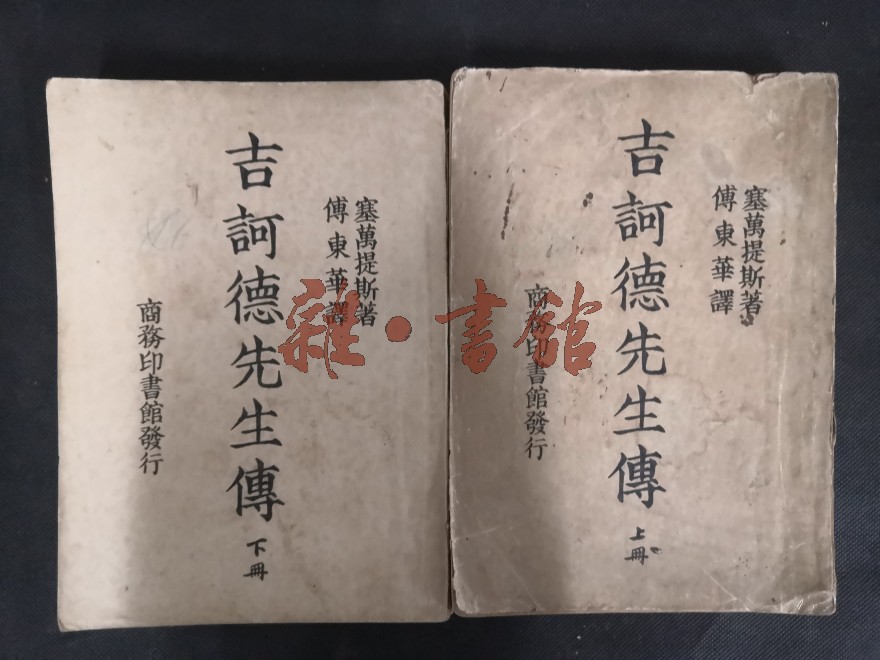 塞萬提斯著
傅東華譯
吉訶德先生傳 上冊
商務印書館發行
塞萬提斯著
傅東華譯
吉訶德先生傳 下冊
商務印書館發行
雜·書館